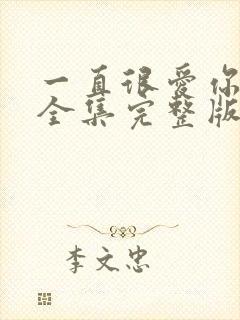 一直很爱你
全集完整版
李文忠